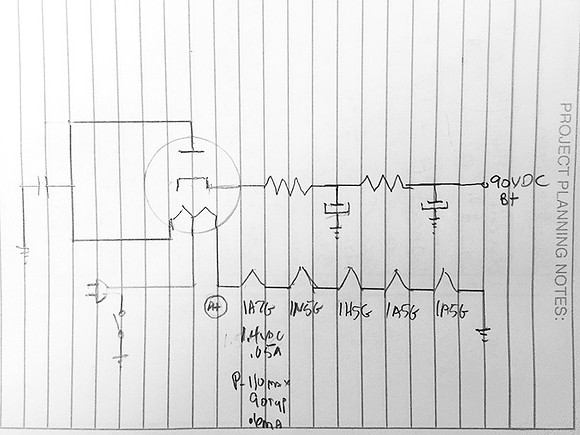 PROJECT PLANNING NOTES:
90VDC
B+
A+
1A7G 1N5G 1H5G 1A5G 1P5G
1.4VDC
.05A
P-110max
90typ
.6mA